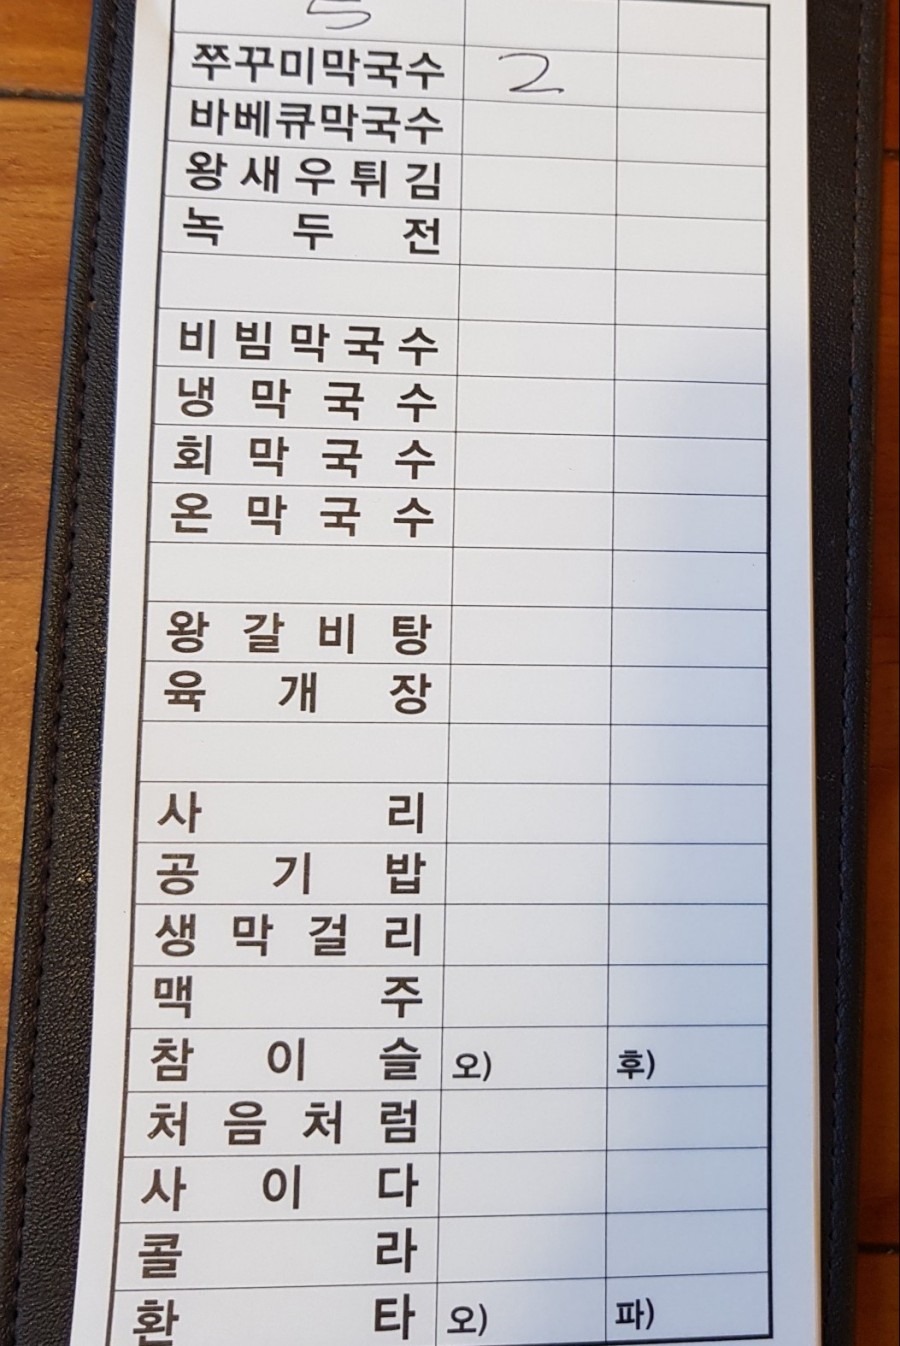 5
쭈꾸미막국수 2
바베큐막국수
왕새우튀김
녹두전
비빔막국수
냉막국수
회막국수
온막국수
왕갈비탕
육개장
사리
공기밥
생막걸리
맥주
참이슬 오) 후)
처음처럼
사이다
콜라
환타 오) 파)